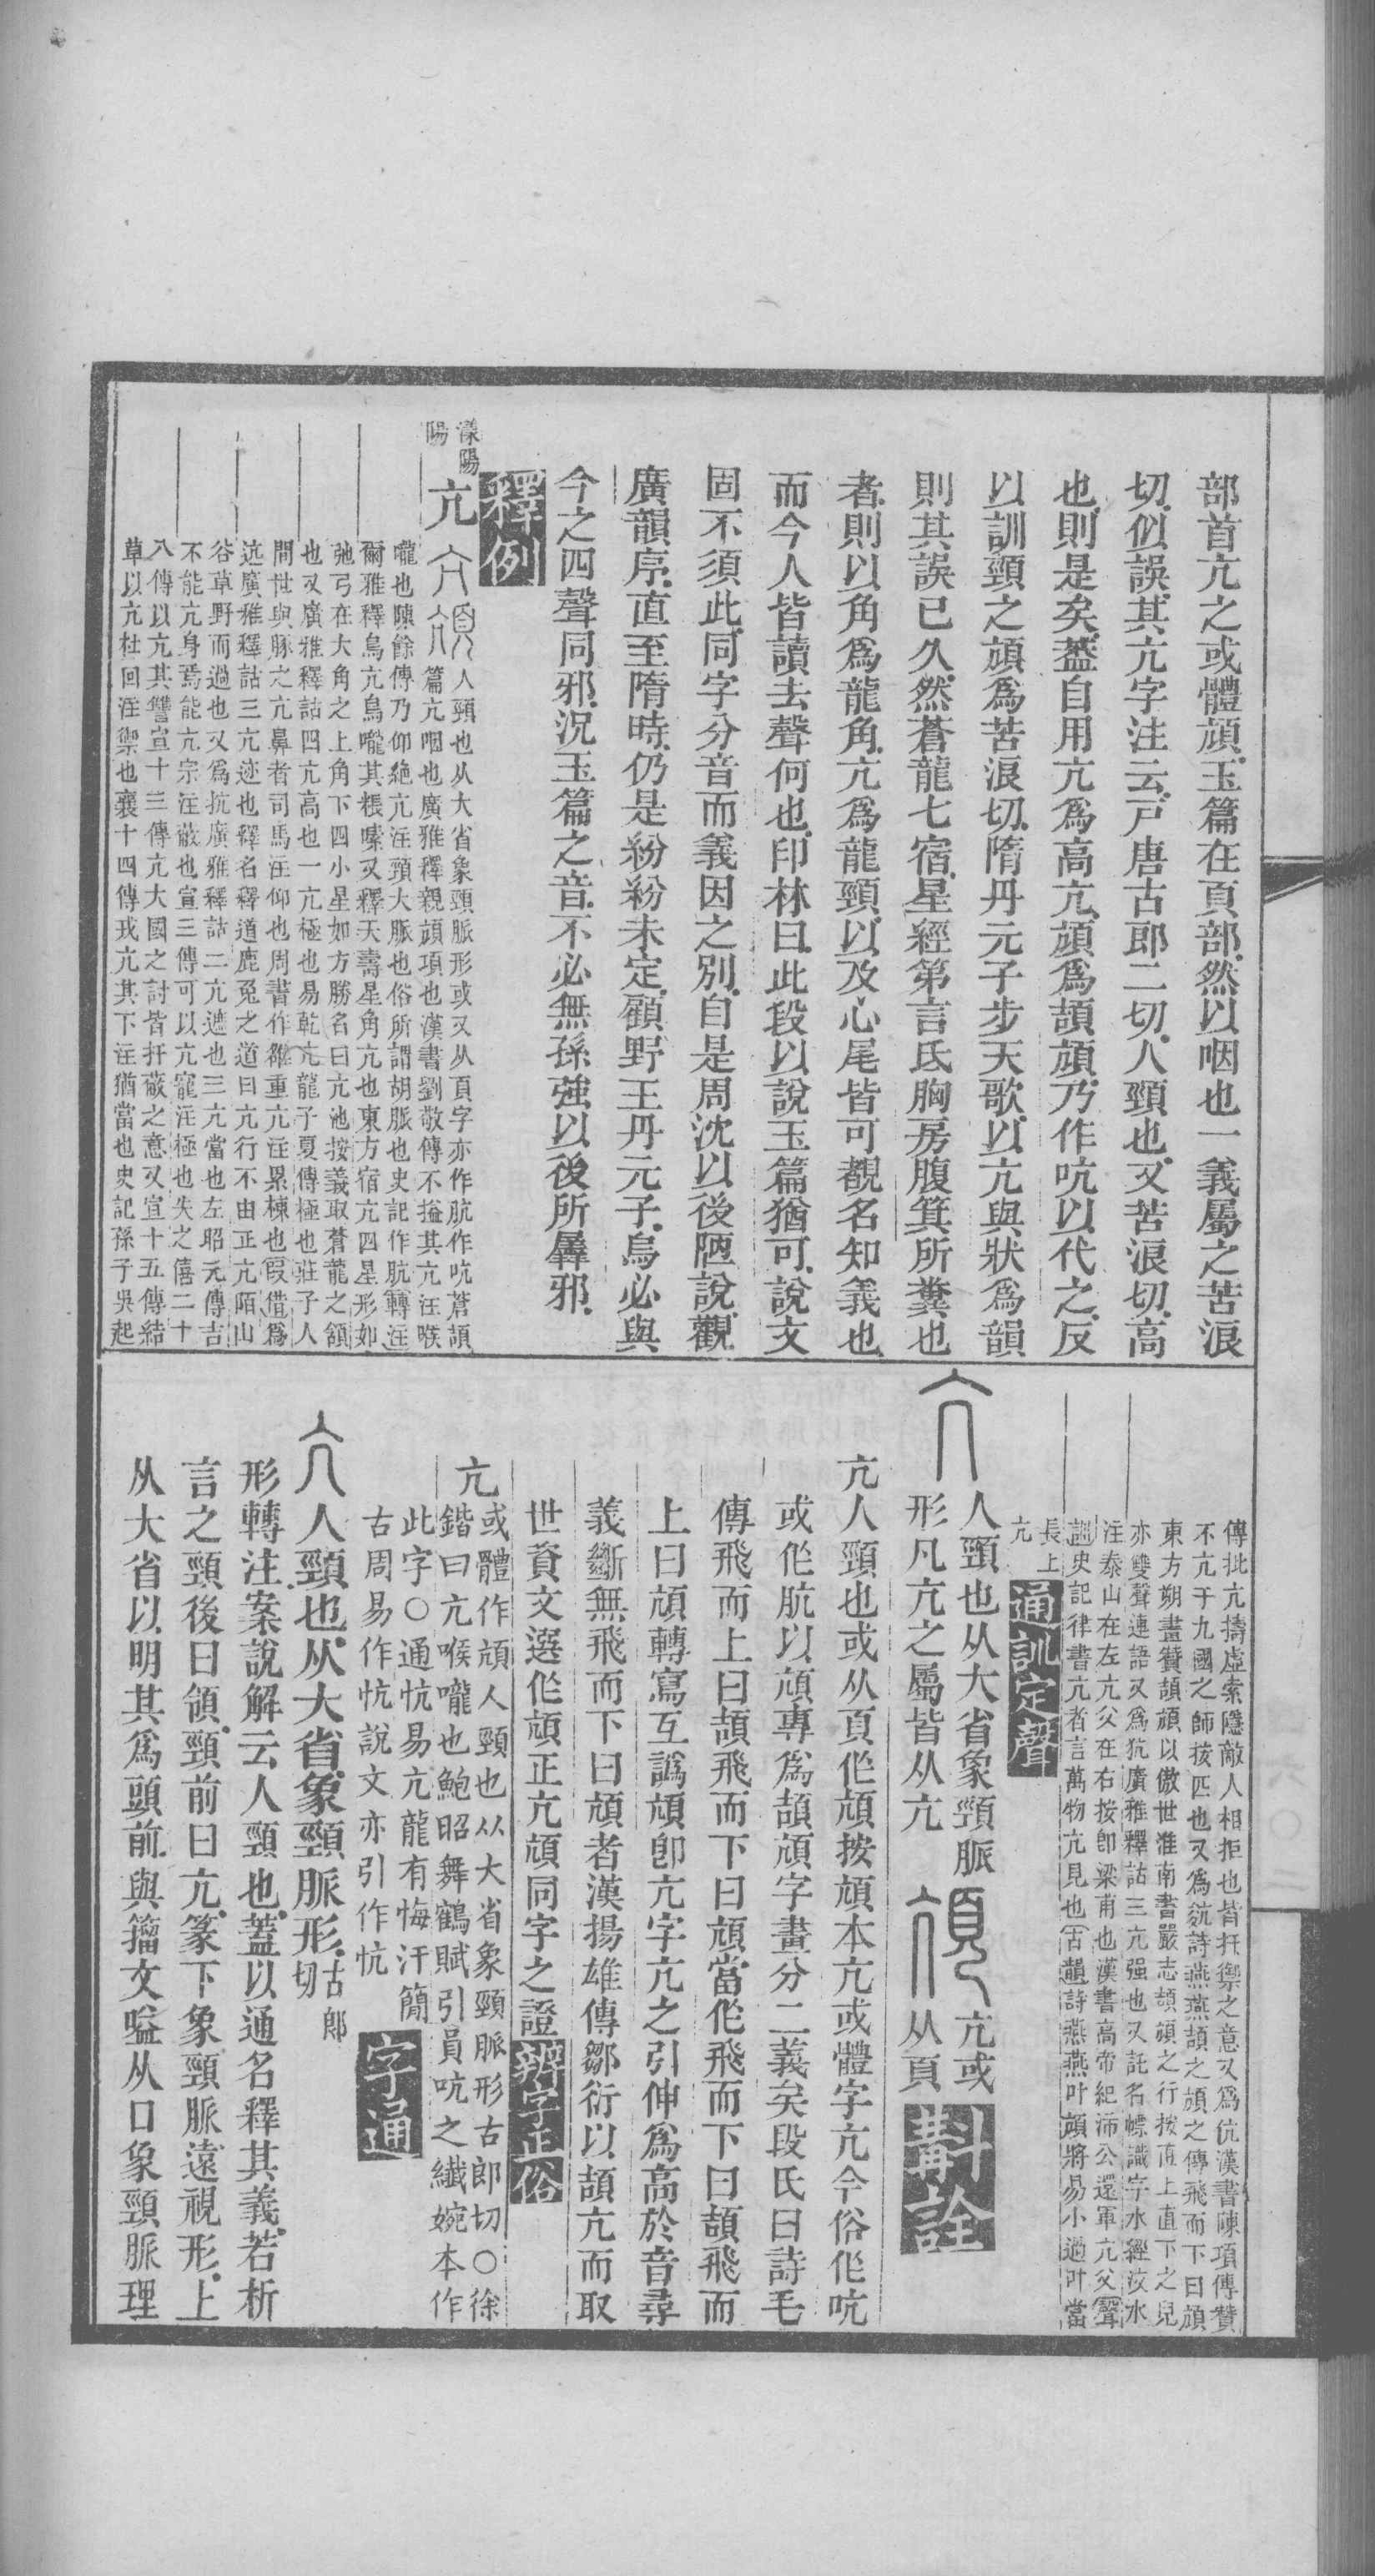 部首亢之或體頏玉篇在頁部然以咽也一義屬之苦浪
切似誤其亢字注云戸唐古郎二切人頸也又苦浪切高
也則是矣蓋自用亢爲高亢頏爲頡頏乃作吭以代之反
以訓頸之頏爲苦浪切隋丹元子步天歌以亢與狀爲韻
則其誤已久然蒼龍七宿星經第言氐胸房腹箕所糞也
者則以角爲龍角亢爲龍頸以及心尾皆可覩名知義也
而今人皆讀去聲何也印林曰此段以說玉篇猶可說文
固不須此同字分音而義因之別自是周沈以後陋說觀
廣韻序直至隋時仍是紛紛未定顧野王丹元子烏必與
今之四聲同邪況玉篇之音不必無孫強以後所羼邪
釋例
漾陽
陽
亢
人頸也从大省象頸脈形或又从頁字亦作肮作吭蒼頡
篇亢咽也廣雅釋親頏項也漢書劉敬傳不搤其亢注喉
嚨也陳餘傳乃仰絶亢注頸大脈也俗所謂胡脈也史記作肮轉注
爾雅釋鳥亢鳥嚨其粻嗉又釋天壽星角亢也東方宿亢四星形如
弛弓在大角之上角下四小星如方勝名曰亢池按義取蒼龍之頷
也又廣雅釋詁四亢高也一亢極也易乾亢龍子夏傳極也莊子人
間世與豚之亢鼻者司馬注仰也周書作雒重亢注累棟也叚借爲
迒廣雅釋詁三亢迹也釋名釋道鹿兔之道曰亢行不由正亢陌山
谷草野而過也又爲抗廣雅釋詁二亢遮也三亢當也左昭元傳吉
不能亢身焉能亢宗注蔽也宣三傳可以亢寵注極也失之僖二十
八傳以亢其讐宣十三傳亢大國之討皆扞蔽之意又宣十五傳結
草以亢杜回注禦也襄十四傳戎亢其下注猶當也史記孫子吳起
傳批亢擣虚索隱敵人相拒也皆扞禦之意又爲伉漢書陳項傳贊
不亢于九國之師按匹也又爲䟘詩燕燕頡之頏之傳飛而下曰頏
東方朔畫贊頡頏以傲世淮南書嚴志頡頏之行按直上直下之皃
亦雙聲連語又爲犺廣雅釋詁三亢强也又託名幖識字水經汶水
注泰山在左亢父在右按即梁甫也漢書高帝紀沛公還軍亢父聲
訓史記律書亢者言萬物亢見也古韻詩燕燕叶頏將易小過叶當
長上
亢
通訓定聲
人頸也从大省象頸脈
形凡亢之屬皆从亢
亢或
从頁
斠詮
亢人頸也或从頁作頏按頏本亢或體字亢今俗作吭
或作肮以頏專爲頡頏字畫分二義矣段氏曰詩毛
傳飛而上曰頡飛而下曰頏當作飛而下曰頡飛而
上曰頏轉寫互譌頏卽亢字亢之引伸爲高於音尋
義斷無飛而下曰頏者漢揚雄傳鄒衍以頡亢而取
世資文選作頏正亢頏同字之證
辨字正俗
亢
或體作頏人頸也从大省象頸脈形古郎切○徐
鍇曰亢喉嚨也鮑昭舞鶴賦引員吭之纖婉本作
此字○通忼易亢龍有悔汗簡
古周易作忼說文亦引作忼
字通
人頸也从大省象頸脈形古郎
切
形轉注案說解云人頸也蓋以通名釋其義若析
言之頸後曰領頸前曰亢篆下象頸脈遠視形上
从大省以明其爲頭前與籀文嗌从口象頸脈理